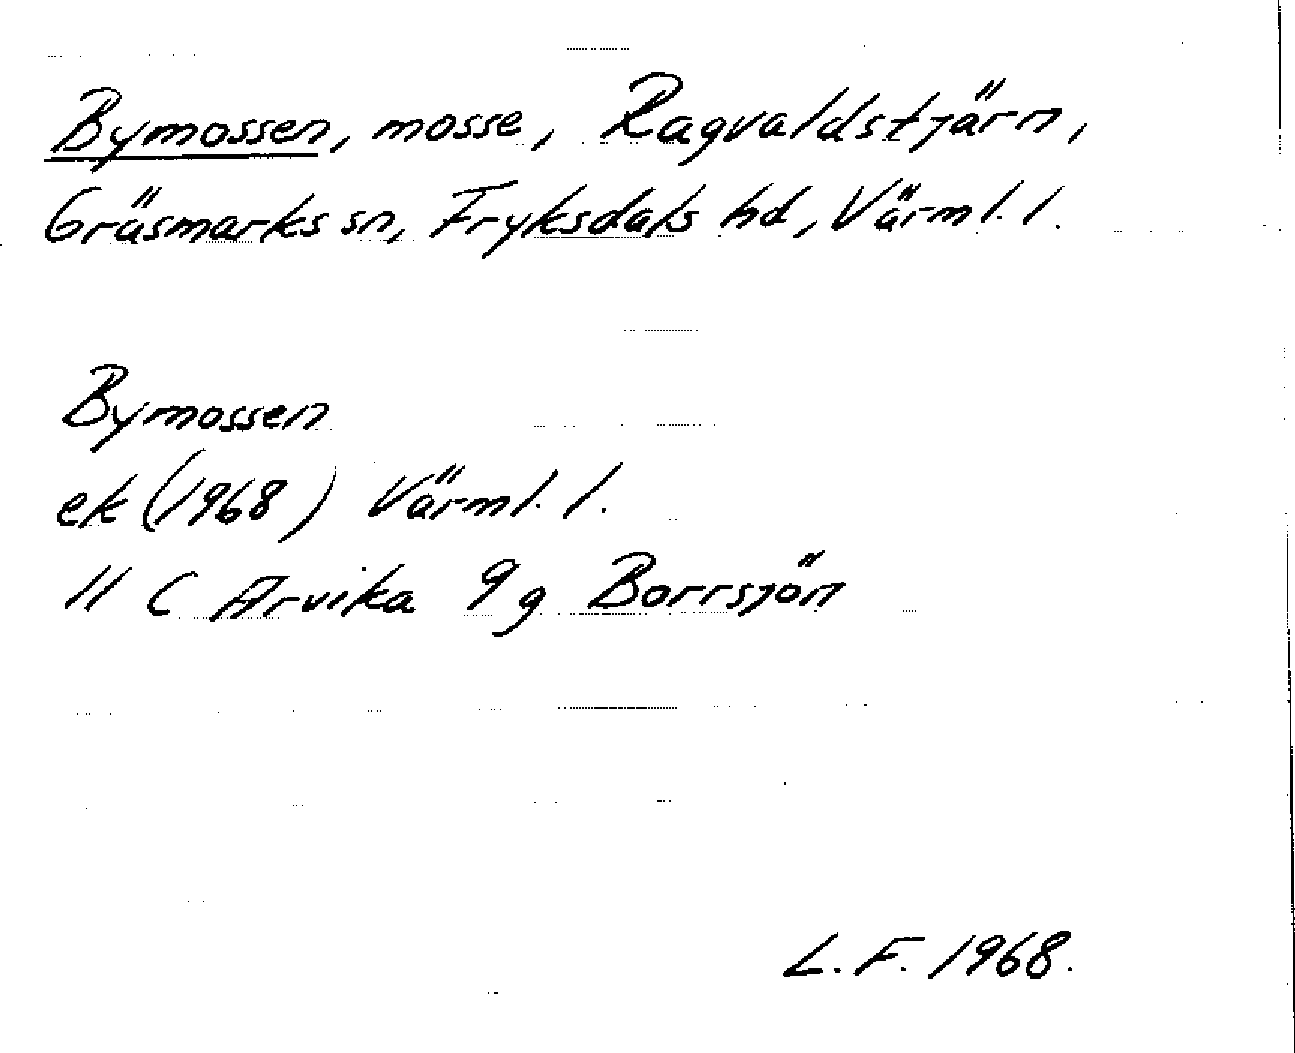 Bymossen, mosse, Ragvaldstjärn,
Gräsmarks sn, Fryksdals hd, Värml. l.
Bymossen
ek (1968) Värml. l.
11 C Arvika 9 g Borrsjön
L. F. 1968.